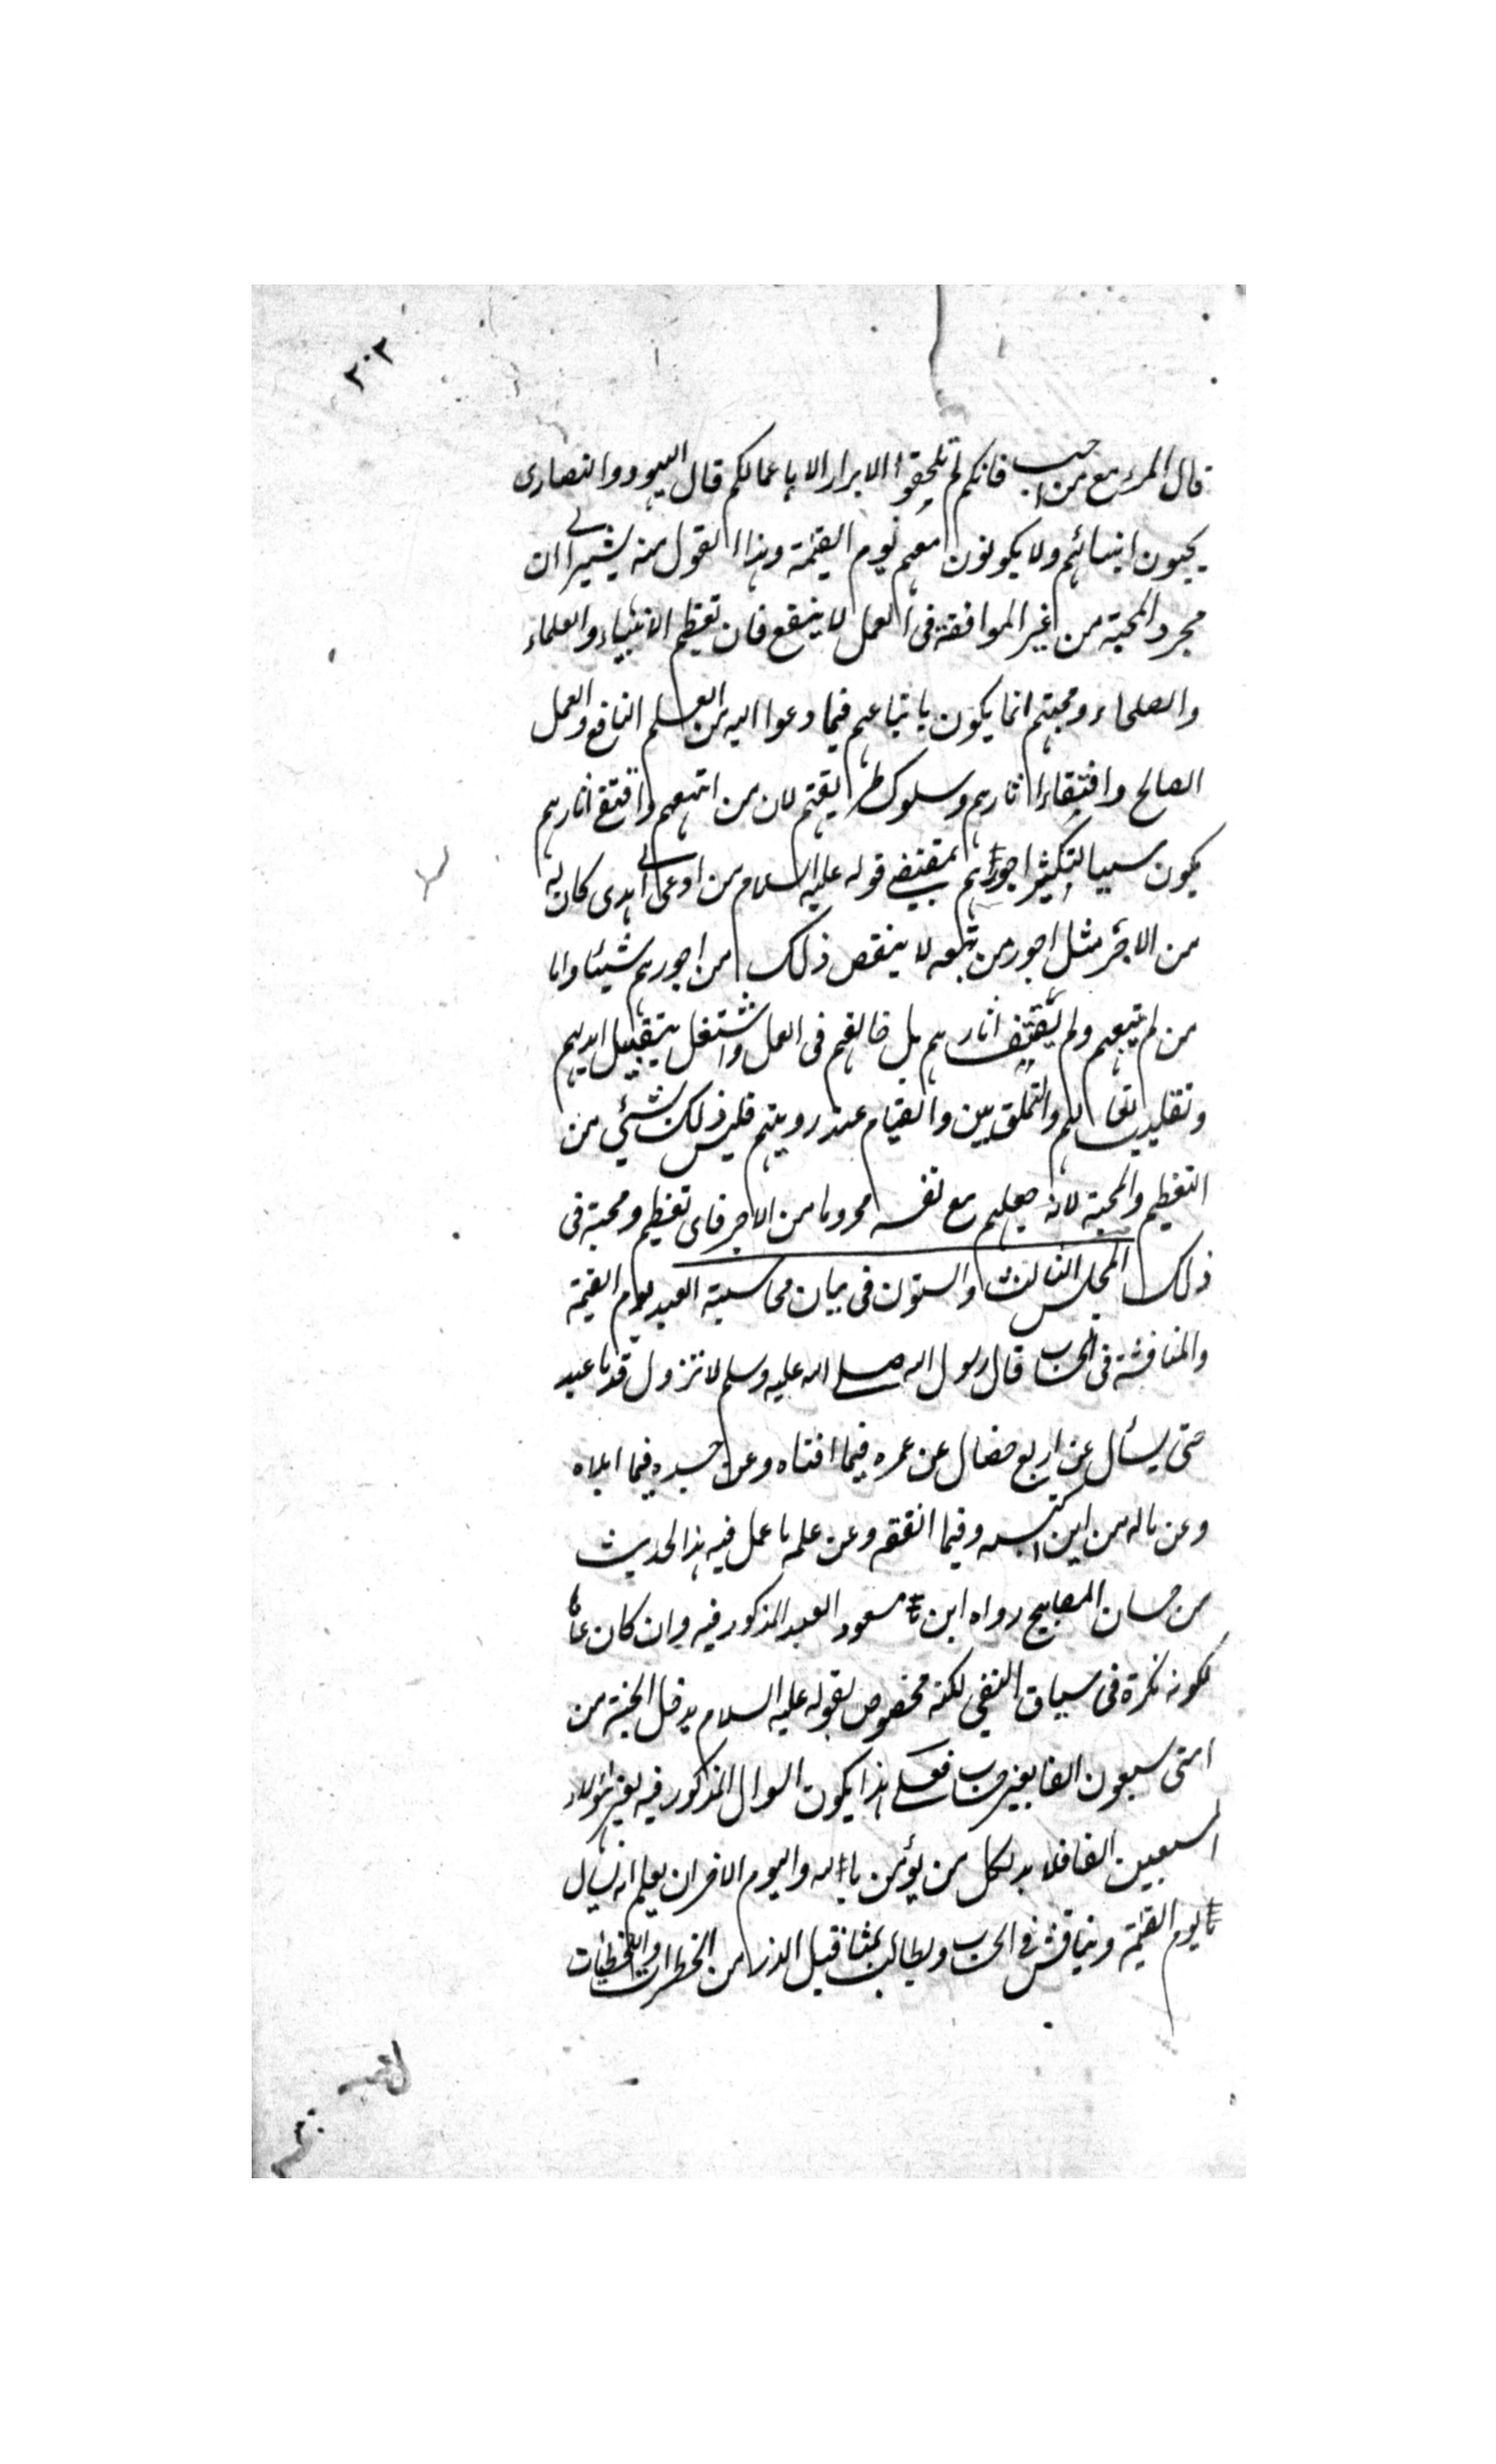 ٣٠٢
قال المرء مع من احب فانكم لم تلحقوا الابرار الا باعمالكم قال اليهود والنصارى
يحبون انبيائهم ولا يكونون معهم يوم القيمة وهذا القول منه يشير الى ان
مجرد المحبة من غير الموافقة فى العمل لا ينفع فان تعظيم الانبياء والعلماء
والصلحاء ومحبتهم انما يكون باتباعهم فيما دعوا اليه من العلم النافع والعمل
الصالح واقتفاء اثارهم وسلوك طريقتهم لان من اتبعهم واقتفى اثارهم
يكون سببا لتكثير اجورهم بمقتضى قوله عليه السلام من ادعى الى هدى كان له
من الاجر مثل اجور من تبعه لا ينقص ذلك من اجورهم شيئا واما
من لم يتبعهم ولم يقتف اثارهم بل خالفهم فى العمل واشتغل بتقبيل ايديهم
وتقليب نعالهم والتملق بين والقيام عند رويتهم فليس ذلك شئي من
التعظيم والمحبة لانه جعلهم مع نفسه محروما من الاجر فاى تعظيم ومحبة فى
ذلك المجلس الثالث والستون فى بيان محاسبة العبد يوم القيمة
والمناقشة فى الحساب قال رسول الله صلى الله عليه وسلم لا تزول قدما عبد
حتى يسأل عن اربع خصال عن عمره فيما افناه وعن جسده فيما ابلاه
وعن ماله من اين اكتسبه وفيما انفقه وعن علمه ما عمل فيه هذا الحديث
من حسان المصابيح رواه ابن مسعود العبد المذكور فيه وان كان عاما
لكونه نكرة فى سياق النفي لكنه مخصوص بقوله عليه السلام يدخل الجنة من
امتى سبعون الفا بغير حساب فعلى هذا يكون السوال المذكور فيه لغير هؤلاء
السبعين الفا فلا بد لكل من يؤمن بالله واليوم الاخر ان يعلم انه يسأل
يوم القيمة ويناقش فى الحساب ويطالب بمثاقيل الذر من الخطرات واللحظات